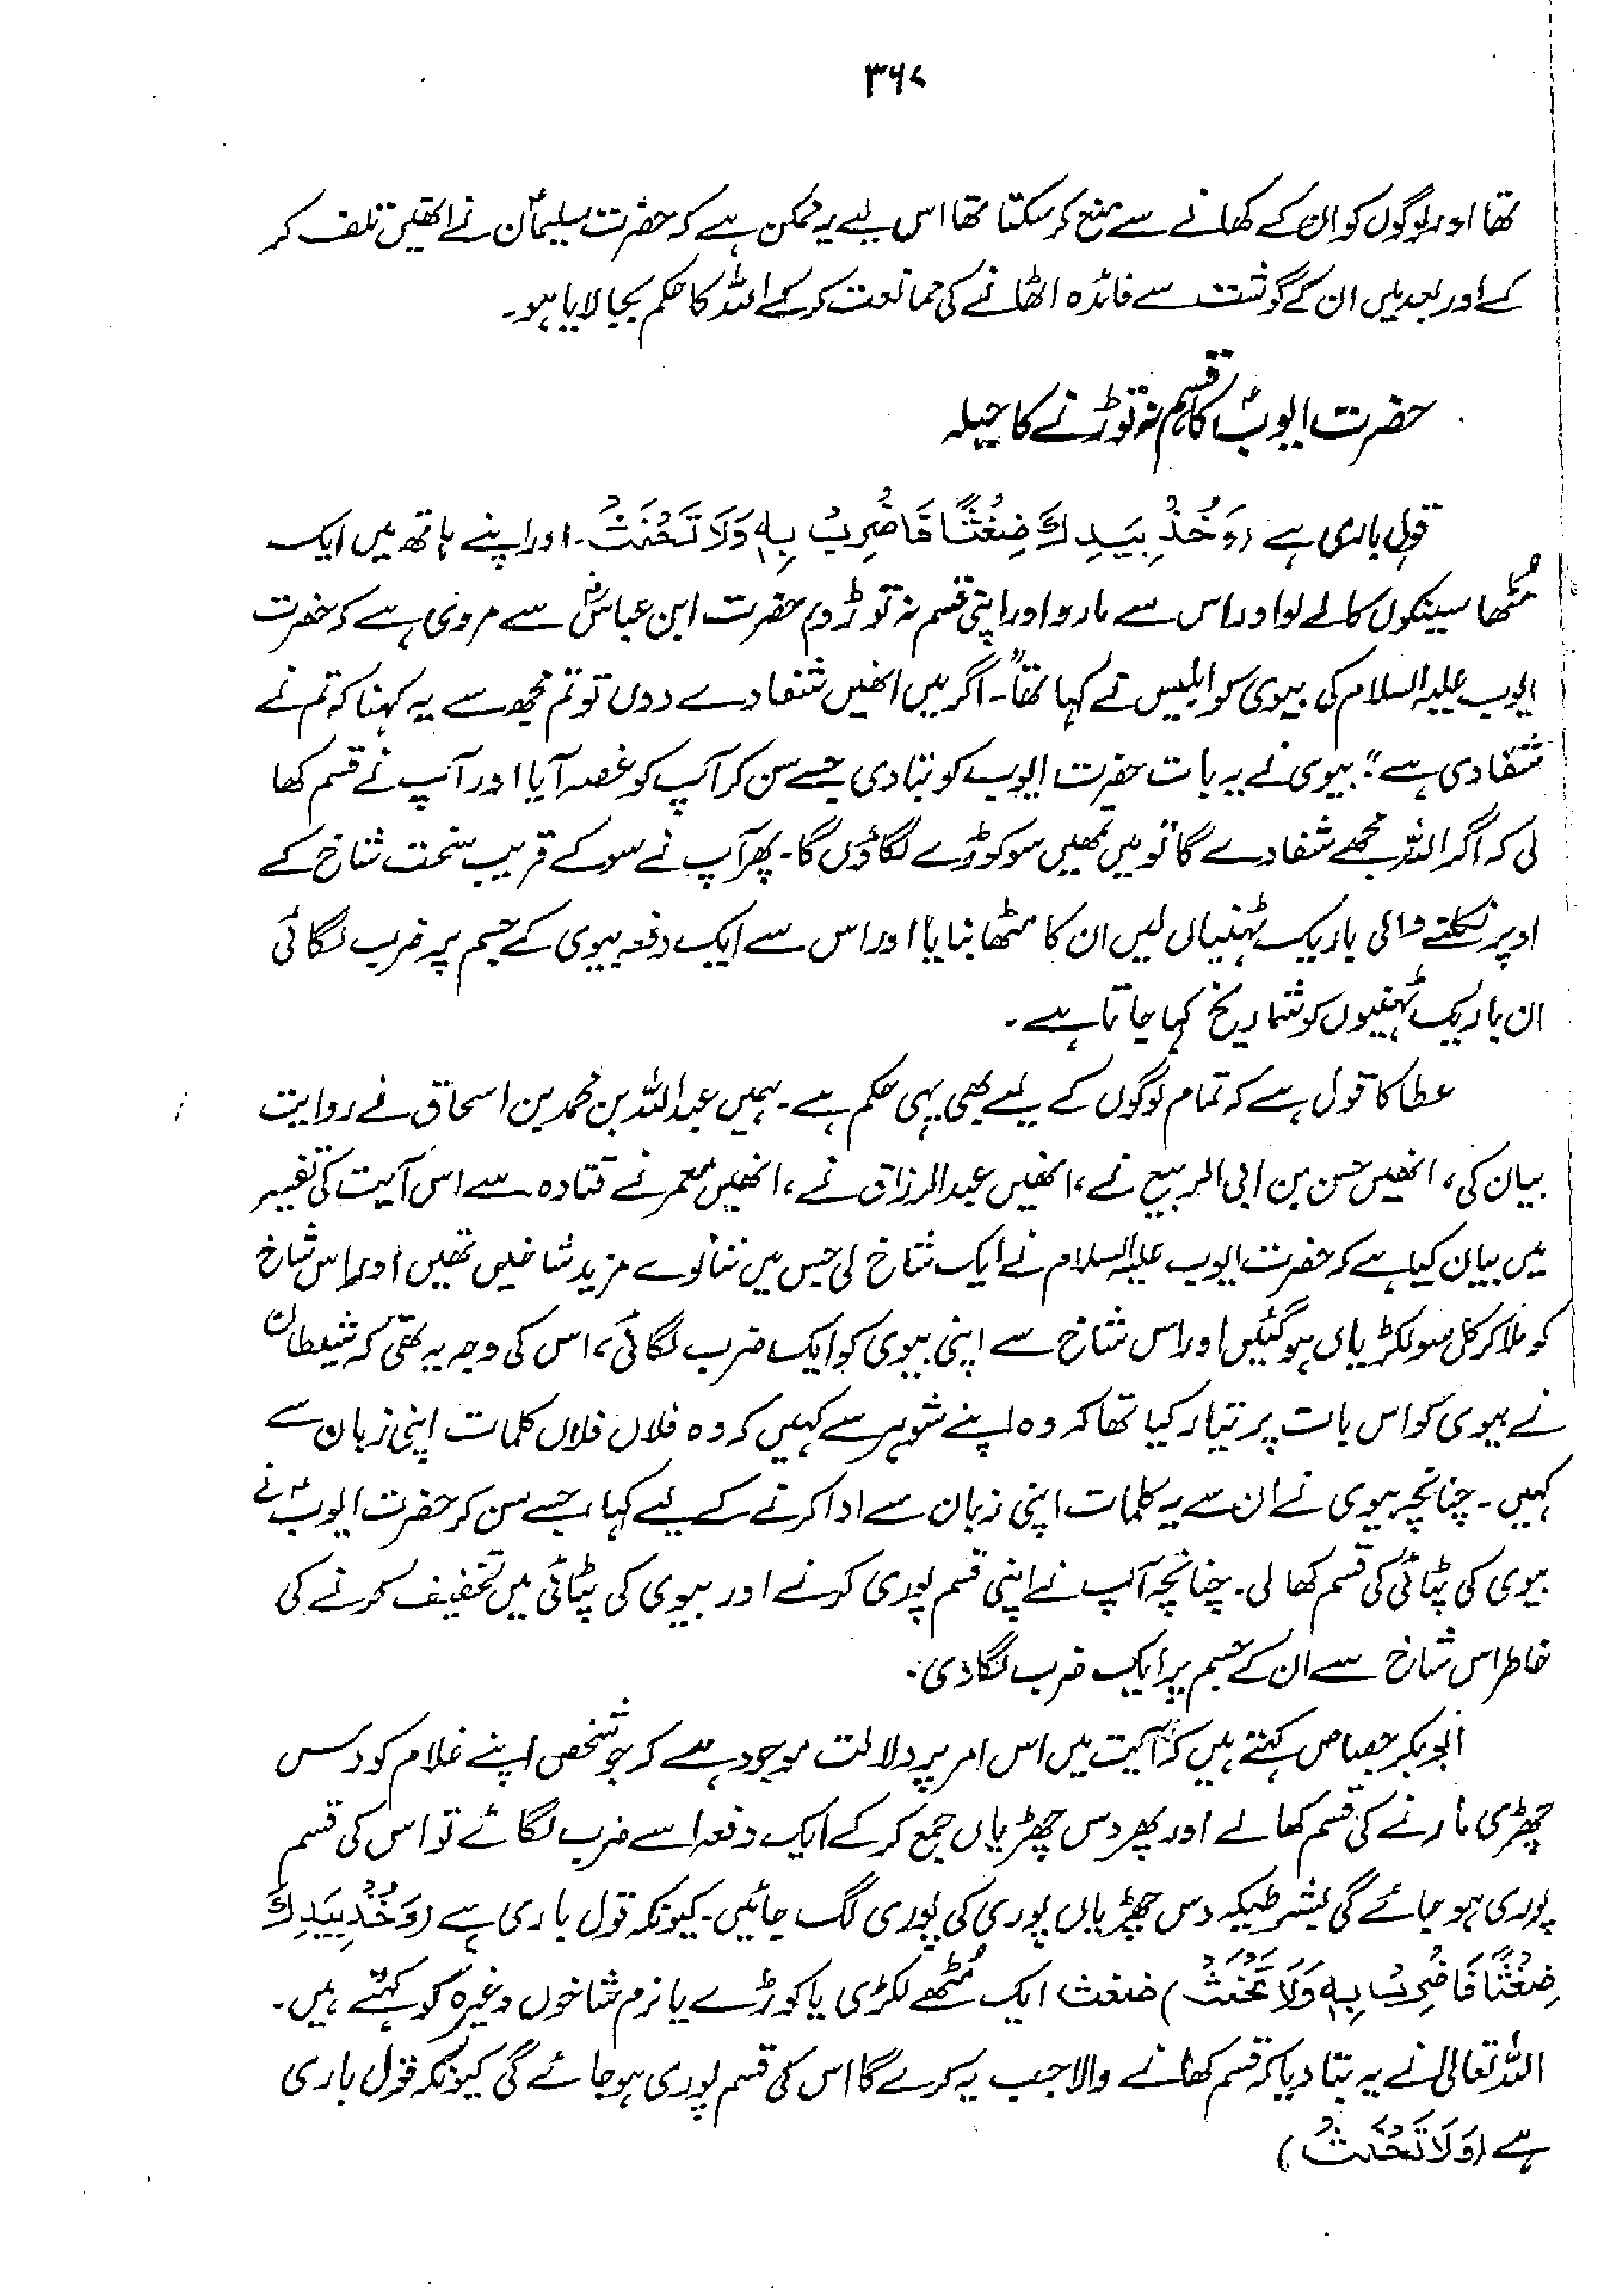 ۳۶۷
تھا اور لوگوں کو ان کے کھانے سے منع کر سکتا تھا اس لیے یہ ممکن ہے کہ حضرت سلیمانؑ نے انھیں تلف کر
کے اور بعد میں ان کے گوشت سے فائدہ اٹھانے کی ممانعت کر کے اللہ کا حکم بجا لایا ہو۔
حضرت ایوبؑ کا قسم نہ توڑنے کا حیلہ
قول باری ہے (وَخُذْ بِيَدِكَ ضِغْثًا فَاضْرِبْ بِهٖ وَلَا تَحْنَثْ۔ اور اپنے ہاتھ میں ایک
مُٹھا سینکوں کا لے لو اور اس سے مارو اور اپنی قسم نہ توڑو) حضرت ابن عباسؓ سے مروی ہے کہ حضرت
ایوب علیہ السلام کی بیوی کو ابلیس نے کہا تھا "۔ اگر میں انھیں شفا دے دوں تو تم مجھ سے یہ کہنا کہ تم نے
شفا دی ہے"؛ بیوی نے یہ بات حضرت ایوب کو بتا دی جسے سن کر آپ کو غصہ آیا اور آپ نے قسم کھا
لی کہ اگر اللہ مجھے شفا دے گا تو میں تمھیں سو کوڑے لگاؤں گا۔ پھر آپ نے سو کے قریب سخت شاخ کے
اوپر نکلنے والی باریک ٹہنیاں لیں ان کا مٹھا بنایا اور اس سے ایک دفعہ بیوی کے جسم پر ضرب لگائی
ان باریک ٹہنیوں کو شماریخ کہا جاتا ہے۔
عطا کا قول ہے کہ تمام لوگوں کے لیے بھی یہی حکم ہے۔ ہمیں عبداللہ بن محمد بن اسحاق نے روایت
بیان کی، انھیں حسن بن ابی الربیع نے، انھیں عبدالرزاق نے، انھیں معمر نے قتادہ سے اس آیت کی تفسیر
میں بیان کیا ہے کہ حضرت ایوب علیہ السلام نے ایک شاخ لی جس میں ننانوے مزید شاخیں تھیں اور اس شاخ
کو ملا کر کل سو لکڑیاں ہو گئیں اور اس شاخ سے اپنی بیوی کو ایک ضرب لگائی، اس کی وجہ یہ تھی کہ شیطان
نے بیوی کو اس بات پر تیار کیا تھا کہ وہ اپنے شوہر سے کہیں کہ وہ فلاں فلاں کلمات اپنی زبان سے
کہیں۔ چنانچہ بیوی نے ان سے یہ کلمات اپنی زبان سے ادا کرنے کے لیے کہا، جسے سن کر حضرت ایوبؑ نے
بیوی کی پٹائی کی قسم کھا لی۔ چنانچہ آپ نے اپنی قسم پوری کرنے اور بیوی کی پٹائی میں تخفیف کرنے کی
خاطر اس شاخ سے ان کے جسم پر ایک ضرب لگا دی۔
ابوبکر جصاص کہتے ہیں کہ آیت میں اس امر پر دلالت موجود ہے کہ جو شخص اپنے غلام کو دس
چھڑی مارنے کی قسم کھا لے اور پھر دس چھڑیاں جمع کر کے ایک دفعہ اسے ضرب لگائے تو اس کی قسم
پوری ہو جائے گی بشرطیکہ دس چھڑیاں پوری کی پوری لگ جائیں۔ کیونکہ قول باری ہے (وَخُذْ بِيَدِكَ
ضِغْثًا فَاضْرِبْ بِهٖ وَلَا تَحْنَثْ) ضغث ایک مُٹھے لکڑی یا کوڑے یا نرم شاخوں وغیرہ کو کہتے ہیں۔
اللہ تعالیٰ نے یہ بتا دیا کہ قسم کھانے والا جب یہ کرے گا اس کی قسم پوری ہو جائے گی کیونکہ قول باری
ہے (وَلَا تَحْنَثْ)